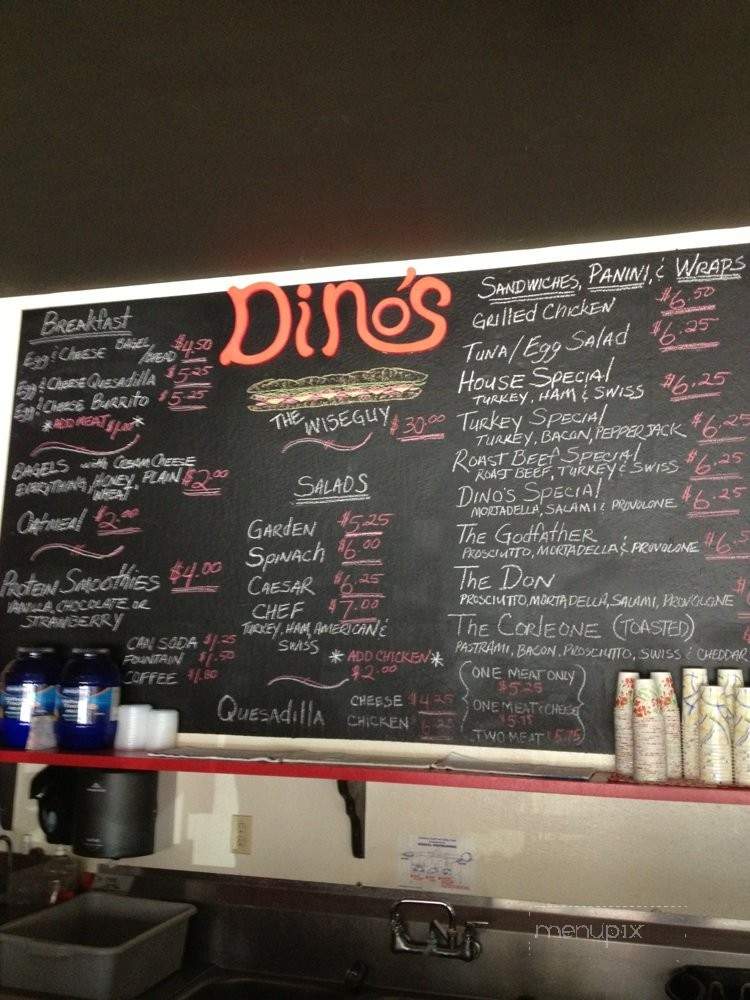 Dino's
THE WISEGUY $30.00
BREAKFAST
EGG & CHEESE BAGEL
/BREAD $4.50
EGG & CHEESE QUESADILLA $5.25
EGG & CHEESE BURRITO $5.25
*ADD MEAT $1.00*
BAGELS with CREAM CHEESE
EVERYTHING, HONEY, PLAIN $2.00
WHEAT
OATMEAL $2.00
PROTEIN SMOOTHIES $4.00
VANILLA, CHOCOLATE OR
STRAWBERRY
CAN SODA $1.25
FOUNTAIN $1.50
COFFEE $1.80
SALADS
GARDEN $5.25
SPINACH $6.00
CAESAR $6.25
CHEF $7.00
TURKEY, HAM, AMERICAN &
SWISS
*ADD CHICKEN*
$2.00
QUESADILLA
CHEESE $4.25
CHICKEN 6.25
SANDWICHES, PANINI, & WRAPS
GRILLED CHICKEN $6.50
TUNA/EGG SALAD $6.25
HOUSE SPECIAL
TURKEY, HAM & SWISS $6.25
TURKEY SPECIAL
TURKEY, BACON, PEPPERJACK $6.25
ROAST BEEF SPECIAL
ROAST BEEF, TURKEY & SWISS $6.25
DINO'S SPECIAL
MORTADELLA, SALAMI & PROVOLONE $6.25
THE GODFATHER
PROSCIUTTO, MORTADELLA & PROVOLONE $6.5
THE DON
PROSCIUTTO, MORTADELLA, SALAMI, PROVOLONE
THE CORLEONE (TOASTED)
PASTRAMI, BACON, PROSCIUTTO, SWISS & CHEDDAR
ONE MEAT ONLY
$5.25
ONE MEAT & CHEESE
TWO MEAT $5.75
menupix